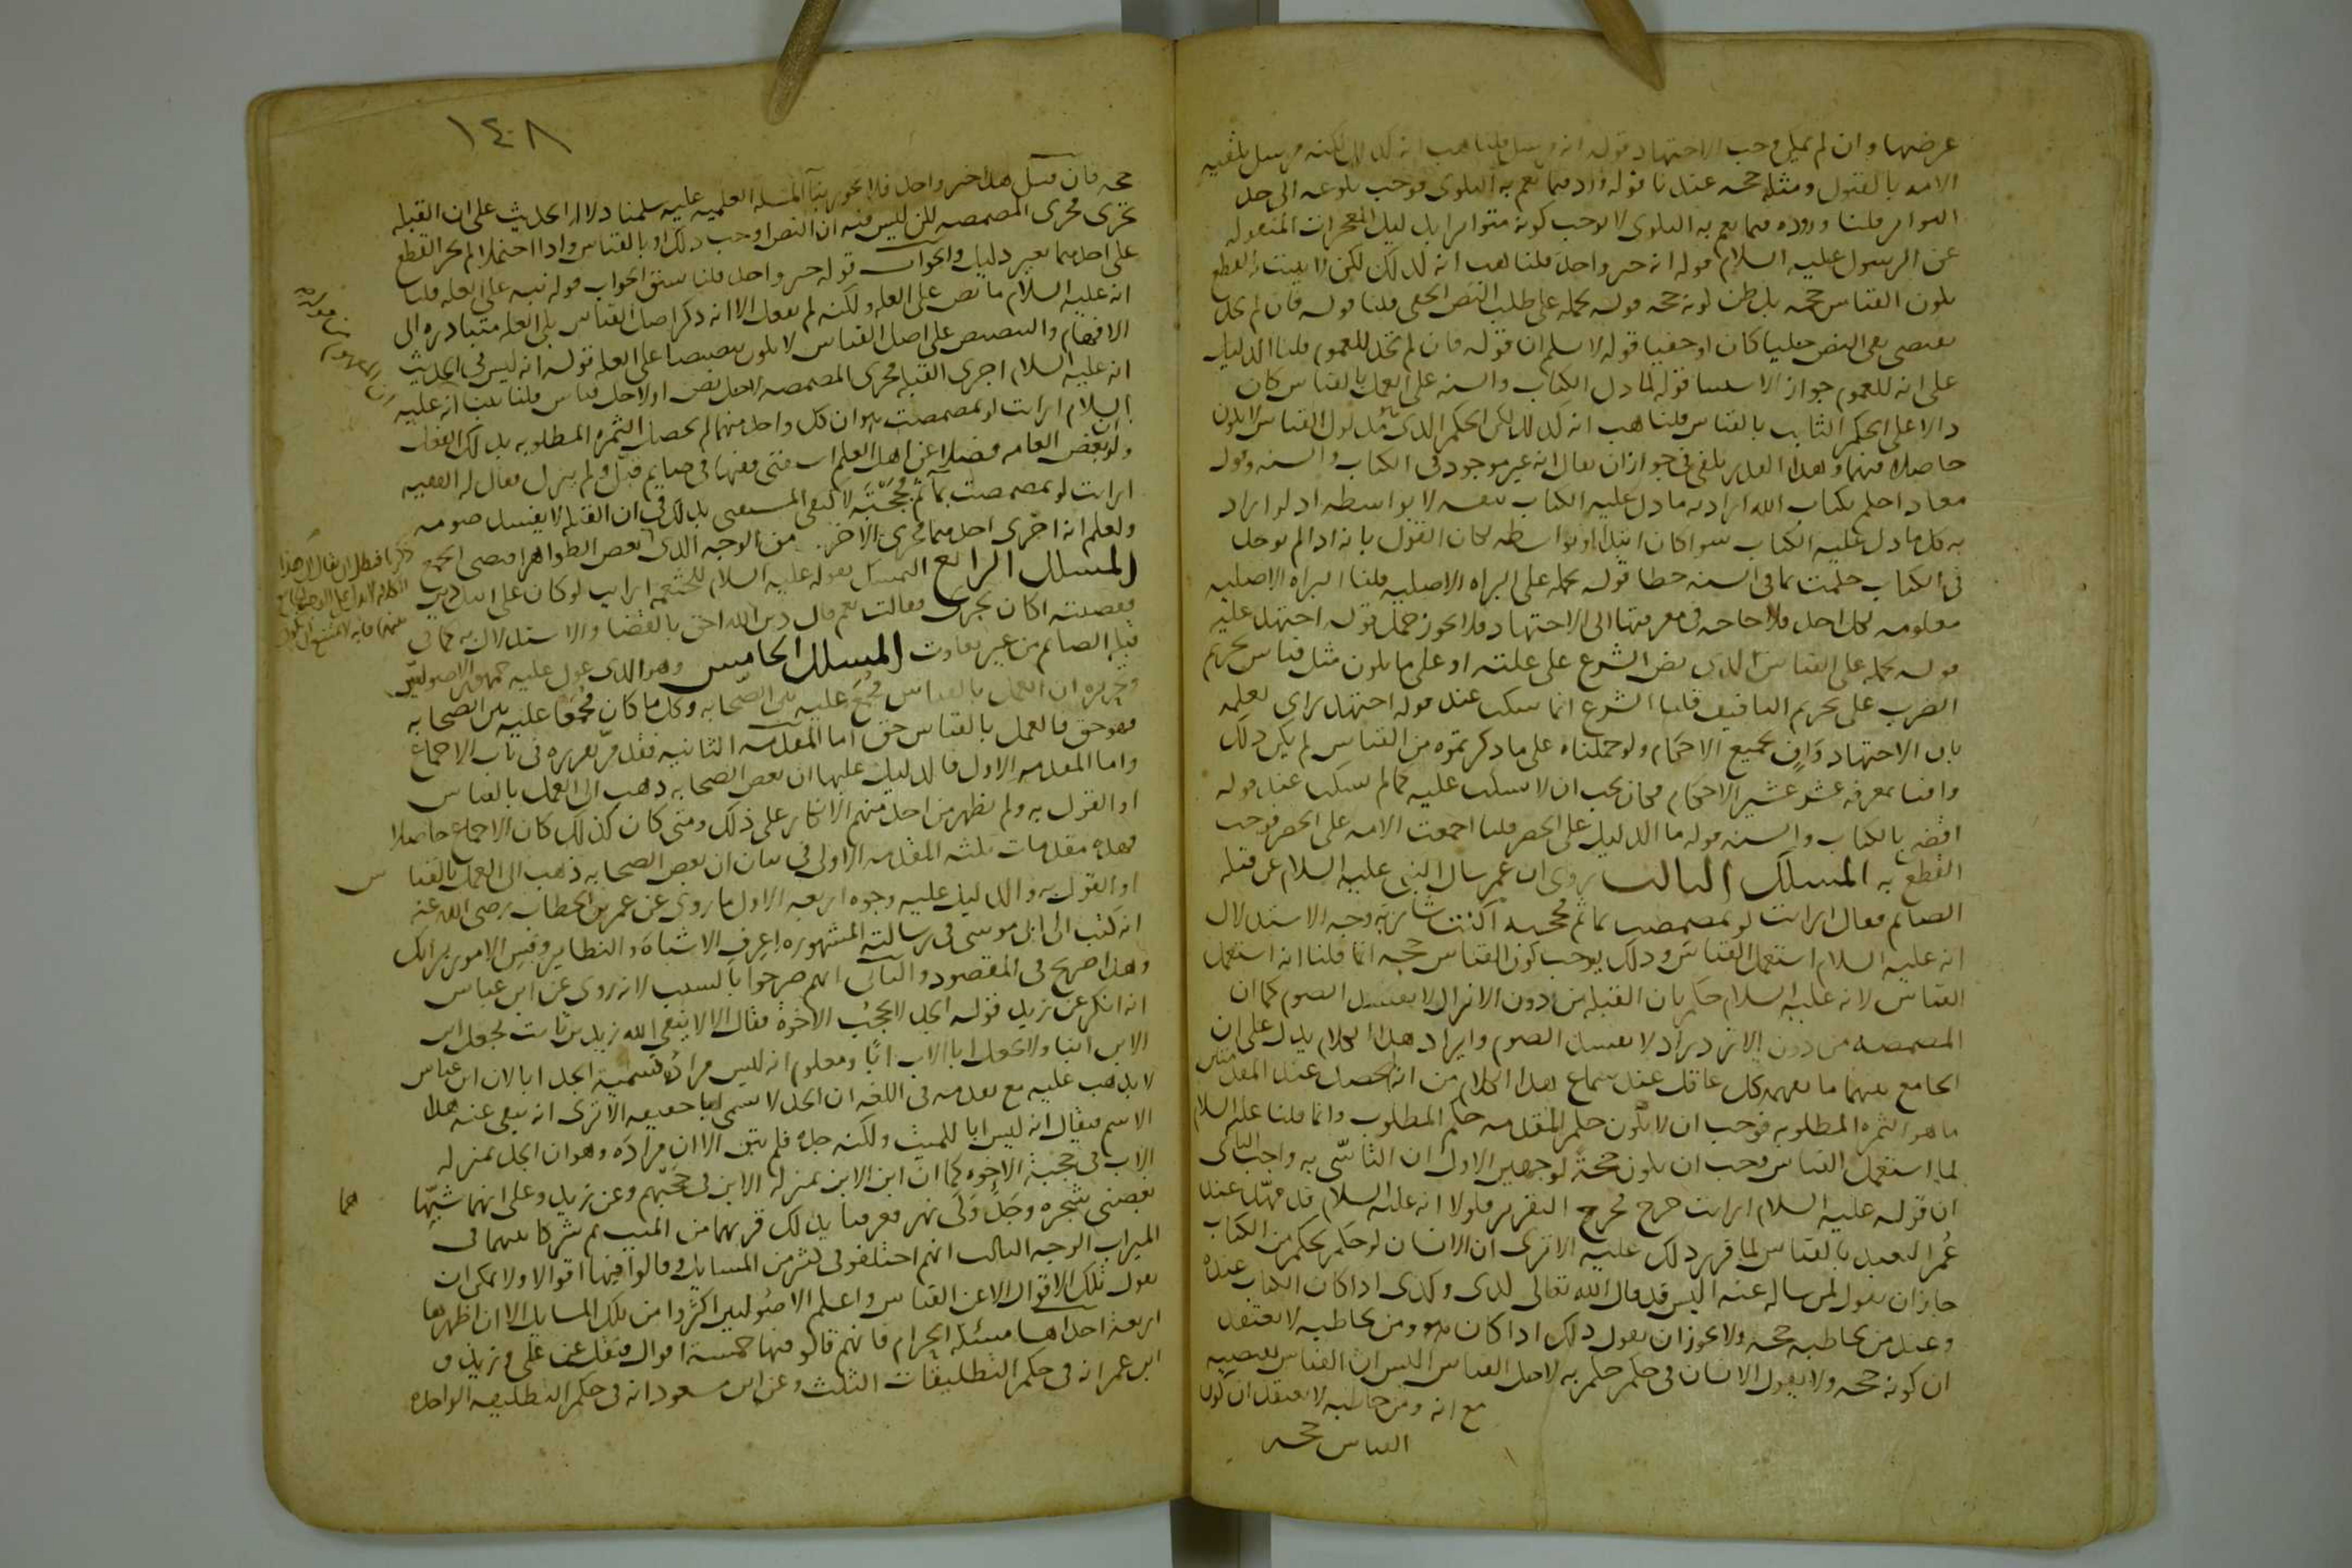 عرضها وان لم يمل وجب الاجتهاد قوله انه مرسل قلنا هب انه كذلك لكنه مرسل تلقيه
الامه بالقبول ومثله حجه عندنا قوله ورد فيما تعم به البلوى فوجب بلوغه الى حد
التواتر قلنا وروده فيما يعم به البلوى لا يوجب كونه متواترا بدليل المعجزات المنقوله
عن الرسول عليه السلام قوله انه خبر واحد قلنا هب انه كذلك لكن لا يثبت القطع
بكون القياس حجه بل ظن كونه حجه قوله نحمله على طلب النص الخفي قلنا قوله فان لم تجد
يقتضي نفي النص جليا كان او خفيا قوله لا نسلم ان قوله فان لم تجد للعموم قلنا الدليل
على انه للعموم جواز الاستثنا قوله لما دل الكتاب والسنه على العمل بالقياس كان
دالا على الحكم الثابت بالقياس قلنا هب انه كذلك لكن الحكم الذي مدلول القياس لا يكون
حاصلا فيهما وهذا القدر يكفي في جواز ان يقال انه غير موجود في الكتاب والسنه وقول
معاذ احكم بكتاب الله اراد به ما دل عليه الكتاب بنفسه لا بواسطه اذ لو اراد
به كل ما دل عليه الكتاب سوا كان ابتدا او بواسطه لكان القول بانه اذا لم يوجد
في الكتاب حكمت بما في السنه خطا قوله نحمله على البراه الاصليه قلنا البراه الاصليه
معلومه لكل احد فلا حاجه في معرفتها الى الاجتهاد فلا يجوز حمل قوله اجتهد عليه
قوله نحمله على القياس الذي نص الشرع على علته او على ما يكون مثل قياس تحريم
الضرب على تحريم التافيف قلنا الشرع انما سكت عند قوله اجتهد رايي لعلمه
بان الاجتهاد وافٍ بجميع الاحكام ولو حملناه على ما ذكرتموه من القياس لم يكن ذلك
وافيا بمعرفه عشر عشير الاحكام فكان يجب ان لا يسكت عليه كما لم يسكت عند قوله
اقضي بالكتاب والسنه قوله ما الدليل على الحصر قلنا اجمعت الامه على الحصر فوجب
القطع به المسلك الثالث روى ان عمر سال النبي عليه السلام عن قبله
الصائم فقال ارايت لو تمضمضت بما ثم مججته اكنت شاربه وجه الاستدلال
انه عليه السلام استعمل القياس وذلك يوجب كون القياس حجه انما قلنا انه استعمل
القياس لانه عليه السلام حكم بان القبله من دون الانزال لا يفسد الصوم كما ان
المضمضه من دون الازدراد لا يفسد الصوم وايراد هذا الكلام يدل على ان
الجامع بينهما ما يفهمه كل عاقل عند سماع هذا الكلام من انه لم يحصل عند المقدمتين
ما هو الثمره المطلوبه فوجب ان لا يكون حكم المقدمه حكم المطلوب وانما قلنا عليه السلام
لما استعمل القياس وجب ان يكون حجة لوجهين الاول ان التاسّي به واجب الثاني
ان قوله عليه السلام ارايت خرج مخرج التقرير فلولا انه عليه السلام قد مهّد عند
عُمر التعبد بالقياس لما قرر ذلك عليه الا ترى ان الانسان لو حكم بحكم من الكتاب
جاز ان يقول لمن ساله عنه اليس قد قال الله تعالى كذى وكذى اذا كان الكتاب عنده
وعند من يخاطبه حجه ولا يجوز ان يقول ذلك اذا كان هو ومن يخاطبه لا يعتقد
ان كونه حجه ولا يقول الانسان في حكم حكم به لاجل القياس اليس ان القياس يقتضيه
مع انه ومن خاطبه لا يعتقد ان كون
القياس حجه
١٤٨
حجه فان قيل هذا خبر واحد فلا يجوز بنآ المسله العلميه عليه سلمنا دلاله الحديث على ان القبله
تجرى مجرى المضمضه لكن ليس فيه ان النص اوجب ذلك او بالقياس واذا احتملا لم يجز القطع
على احدهما بغير دليل والجواب قوله خبر واحد قلنا سبق الجواب قوله نبه على العله قلنا
انه عليه السلام ما نص على العله ولكنه لم يفعل الا انه ذكر اصل القياس بل العله متبادره الى
الافهام والتنصيص على اصل القياس لا يكون تنصيصا على العله قوله انه ليس في الحديث
انه عليه السلام اجرى القبله مجرى المضمضه لاجل نص او لاجل قياس قلنا بينا انه عليه
السلام ارايت لو تمضمضت هو ان كل واحد منهما لم يحصل الثمره المطلوبه بذلك الفعل
ولو بعض العامه فضلا عن اهل العلم استفتى فقيها في صايم قبّل ولم ينزل فقال له الفقيه
ارايت لو تمضمضت بمآ ثم مججته لاكتفى المستفتي بذلك في ان القبله لا يفسد صومه
ولعلم انه اجرى احدهما مجرى الاخر من الوجه الذي
المسلك الرابع التمسك بقوله عليه السلام للخثعميه ارايت لو كان على ابيك دين
فقضيته اكان يجزى فقالت نعم قال دين الله احق بالقضا والاستدلال به كما في
قبله الصايم من غير تفاوت المسلك الخامس وهو الذي عول عليه جمهور الاصوليين
وتحريره ان العمل بالقياس مُجمَع عليه بين الصّحابه وكل ما كان مُجمَعا عليه بين الصحابه
فهو حق فالعمل بالقياس حق اما المقدمه الثانيه فقد مرّ تقريره في باب الاجماع
واما المقدمه الاولى فالدليل عليها ان بعض الصحابه ذهب الى العمل بالقياس
او القول به ولم يظهر من احد منهم الانكار على ذلك ومتى كان كذلك كان الاجماع حاصلا
فهذه مقدمات ثلثه المقدمه الاولى في بيان ان بعض الصحابه ذهب الى العمل بالقيا
س
او القول به والدليل عليه وجوه اربعه الاول ما روى عن عمر بن الخطاب رضي الله عنه
انه كتب الى ابي موسى في رسالته المشهوره اعرف الاشباه والنظاير وقِس الامور برايك
وهذا صريح في المقصود والثاني انهم صرحوا بالتشبيه لانه روى عن ابن عباس
انه انكر عن زيد قوله الجد لا يحجُب الاخوة فقال الا لا يتقي الله زيد بن ثابت يجعل ابن
الابن ابنا ولا يجعل ابا الاب ابًا ومعلوم انه ليس مراده تسميه الجد ابا لان ابن عباس
لا يذهب عليه مع تقدمه في اللغه ان الجد لا يسمى ابا حقيقه الا ترى انه ينفي عنه هذا
الاسم فيقال انه ليس ابا للميت ولكنه جده فلم يبق الا ان مرادَه وهو ان الجد بمنزله
الاب في حجبه الاخوه كما ان ابن الابن بمنزله الابن في حَجبهم وعن زيد وعلى انهما شبّها
هما
بغصنى شجره وجَدولَى نهر فعرفنا بذلك قربهما من الميت ثم شركا بينهما في
الميراث الوجه الثالث انهم اختلفو في كثير من المسايل وقالوا فيها اقوالا ولا يمكن ان
يقول تلك الاقوال الا عن القياس واعلم الاصوليين اكثروا من تلك المسايل الا ان اظهرها
اربعه احداها مسئله الحرام فانهم قالو فيها خمسة اقوال فنقل عن على وزيد و
ابن عمر انه في حكم التطليقات الثلث وعن ابن مسعود انه في حكم التطليقه الواحده